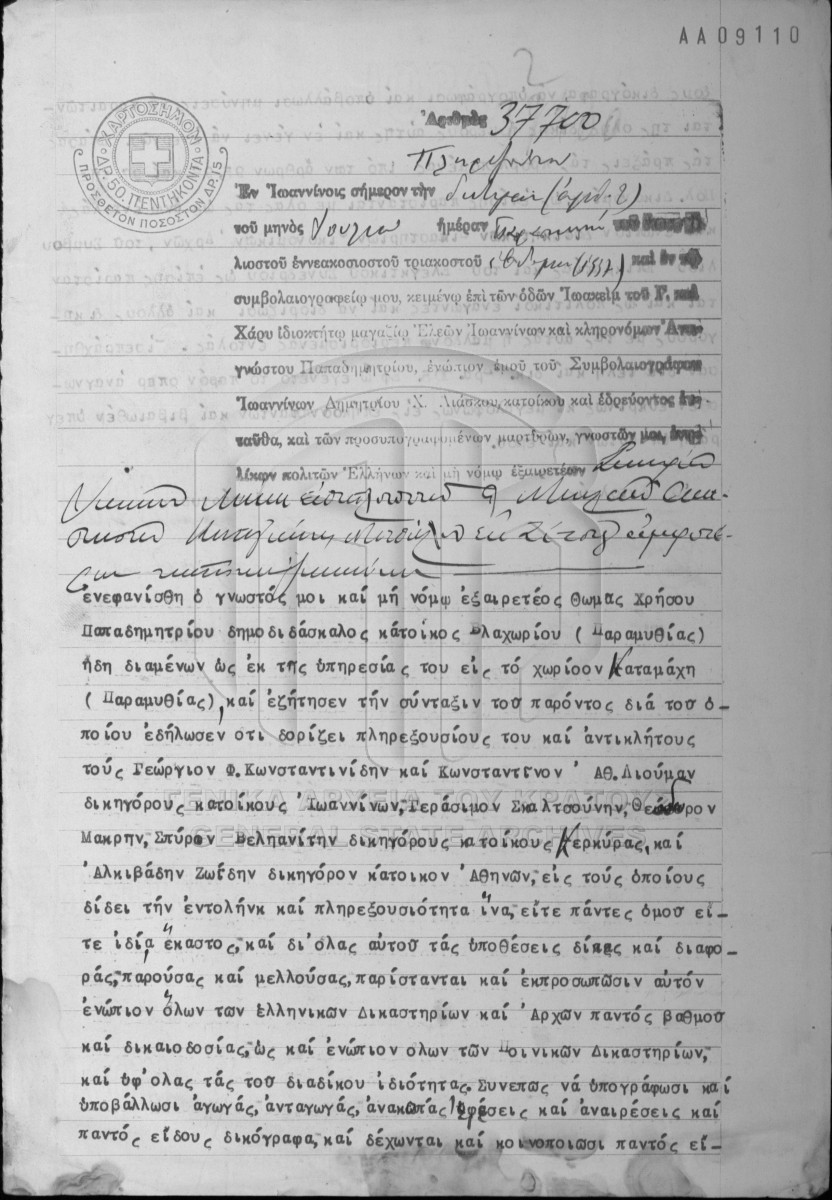 ΑΑ09110
2
ΧΑΡΤΟΣΗΜΟΝ
ΔΡ. 50. ΠΕΝΤΗΚΟΝΤΑ
ΠΡΟΣΘΕΤΟΝ ΠΟΣΟΣΤΟΝ ΔΡ. 15
Ἀριθμὸς 37700
Πληρεξούσιον
Ἐν Ἰωαννίνοις σήμερον τὴν δευτέραν (ἀριθ. 2)
τοῦ μηνὸς Ἰουλίου ἡμέραν Παρασκευὴν τοῦ
λιοστοῦ ἐννεακοσιοστοῦ τριακοστοῦ ἑβδόμου (1937) καὶ ἐν τῷ
συμβολαιογραφείῳ μου, κειμένῳ ἐπὶ τῶν ὁδῶν Ἰωακεὶμ τοῦ Γ. καὶ
Χάρυ ἰδιοκτήτῳ μαγαζίῳ Ἐλεῶν Ἰωαννίνων καὶ κληρονόμων Ἀνα-
γνώστου Παπαδημητρίου, ἐνώπιον ἐμοῦ τοῦ Συμβολαιογράφου
Ἰωαννίνων Δημητρίου Χ. Λιάσκου, κατοίκου καὶ ἑδρεύοντος ἐν-
ταῦθα, καὶ τῶν προσυπογραφομένων μαρτύρων, γνωστῶν μοι, ἐνη-
λίκων πολιτῶν Ἑλλήνων καὶ μὴ νόμῳ ἐξαιρετέων
ἐνεφανίσθη ὁ γνωστός μοι καί μή νόμῳ ἐξαιρετέος Θωμας Χρήσου
Παπαδημητρίου δημοδιδάσκαλος κάτοίκος Βλαχωρίου ( Παραμυθίας)
ἤδη διαμένων ὡς ἐκ τῆς ὑπηρεσίας του εἰς τό χωρίοον Καταμάχη
( Παραμυθίας), καί ἐζήτησεν τήν σύνταξιν τοσ παρόντος διά τοσ ὁ-
ποίου ἐδήλωσεν ὅτι δορίζει πληρεξουσίους του καί ἀντικλήτους
τούς Γεώργιον Φ. Κωνσταντινίδην καί Κωνσταντῖνον Ἀθ. Λιούμαν
δικηγόρους κατοίκους Ἰωαννίνων, Γεράσιμον Σκαλτσούνην, Θεόδωρον
Μακρην, Σπύρον Βεληανίτην δικηγόρους κατοίκους Κερκύρας, καί
Ἀλκιβάδην Ζωΐδην δικηγόρον κάτοικον Ἀθηνῶν, εἰς τούς ὁποίους
δίδει τήν ἐντολήνκ καί πληρεξουσιότητα ἵνα, εἴτε πάντες ὁμοσ εἴ-
τε ἰδίᾳ ἕκαστος, καί δι' ὅλας αὐτοσ τάς ὑποθέσεις δίκες καί διαφο-
ράς, παρούσας καί μελλούσας, παρίστανται καί ἐκπροσωπῶσιν αὐτόν
ἐνώπιον ὅλων των Ἑλληνικῶν Δικαστηρίων καί Ἀρχῶν παντός βαθμοσ
καί δικαιοδοσίας, ὡς καί ἐνώπιον ὅλων τῶν Ποινικῶν Δικαστηρίων,
καί ὑφ' ὅλας τάς τοσ διαδίκου ἰδιότητας. Συνεπῶς νά ὑπογράφωσι καί
ὑποβάλλωσι ἀγωγάς, ἀνταγωγάς, ἀνακοπάς ἐφέσεις καί ἀναιρέσεις καί
παντός εἴδους δικόγραφα, καί δέχωνται καί κοινοποιῶσι παντός εἴ-
ΓΕΝΙΚΑ ΑΡΧΕΙΑ ΤΟΥ ΚΡΑΤΟΥΣ
GENERAL STATE ARCHIVES